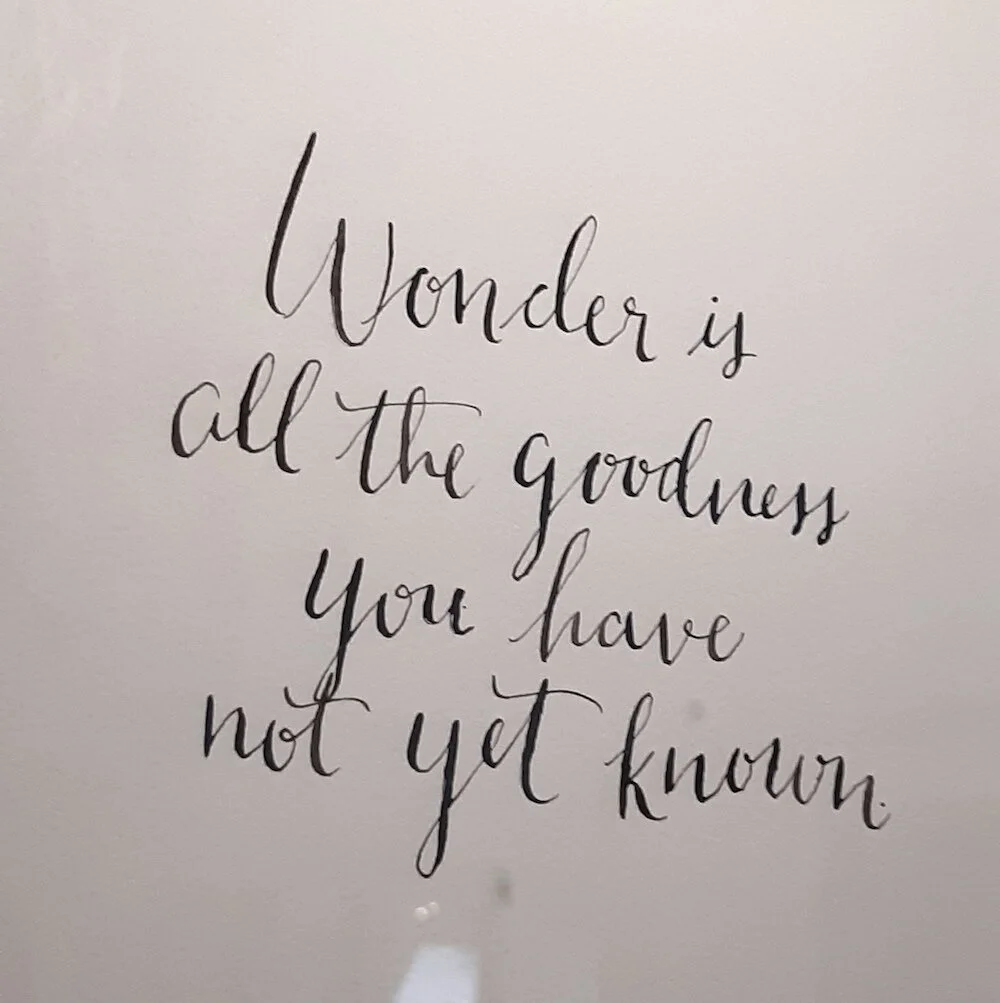 Wonder is
all the goodness
you have
not yet known.